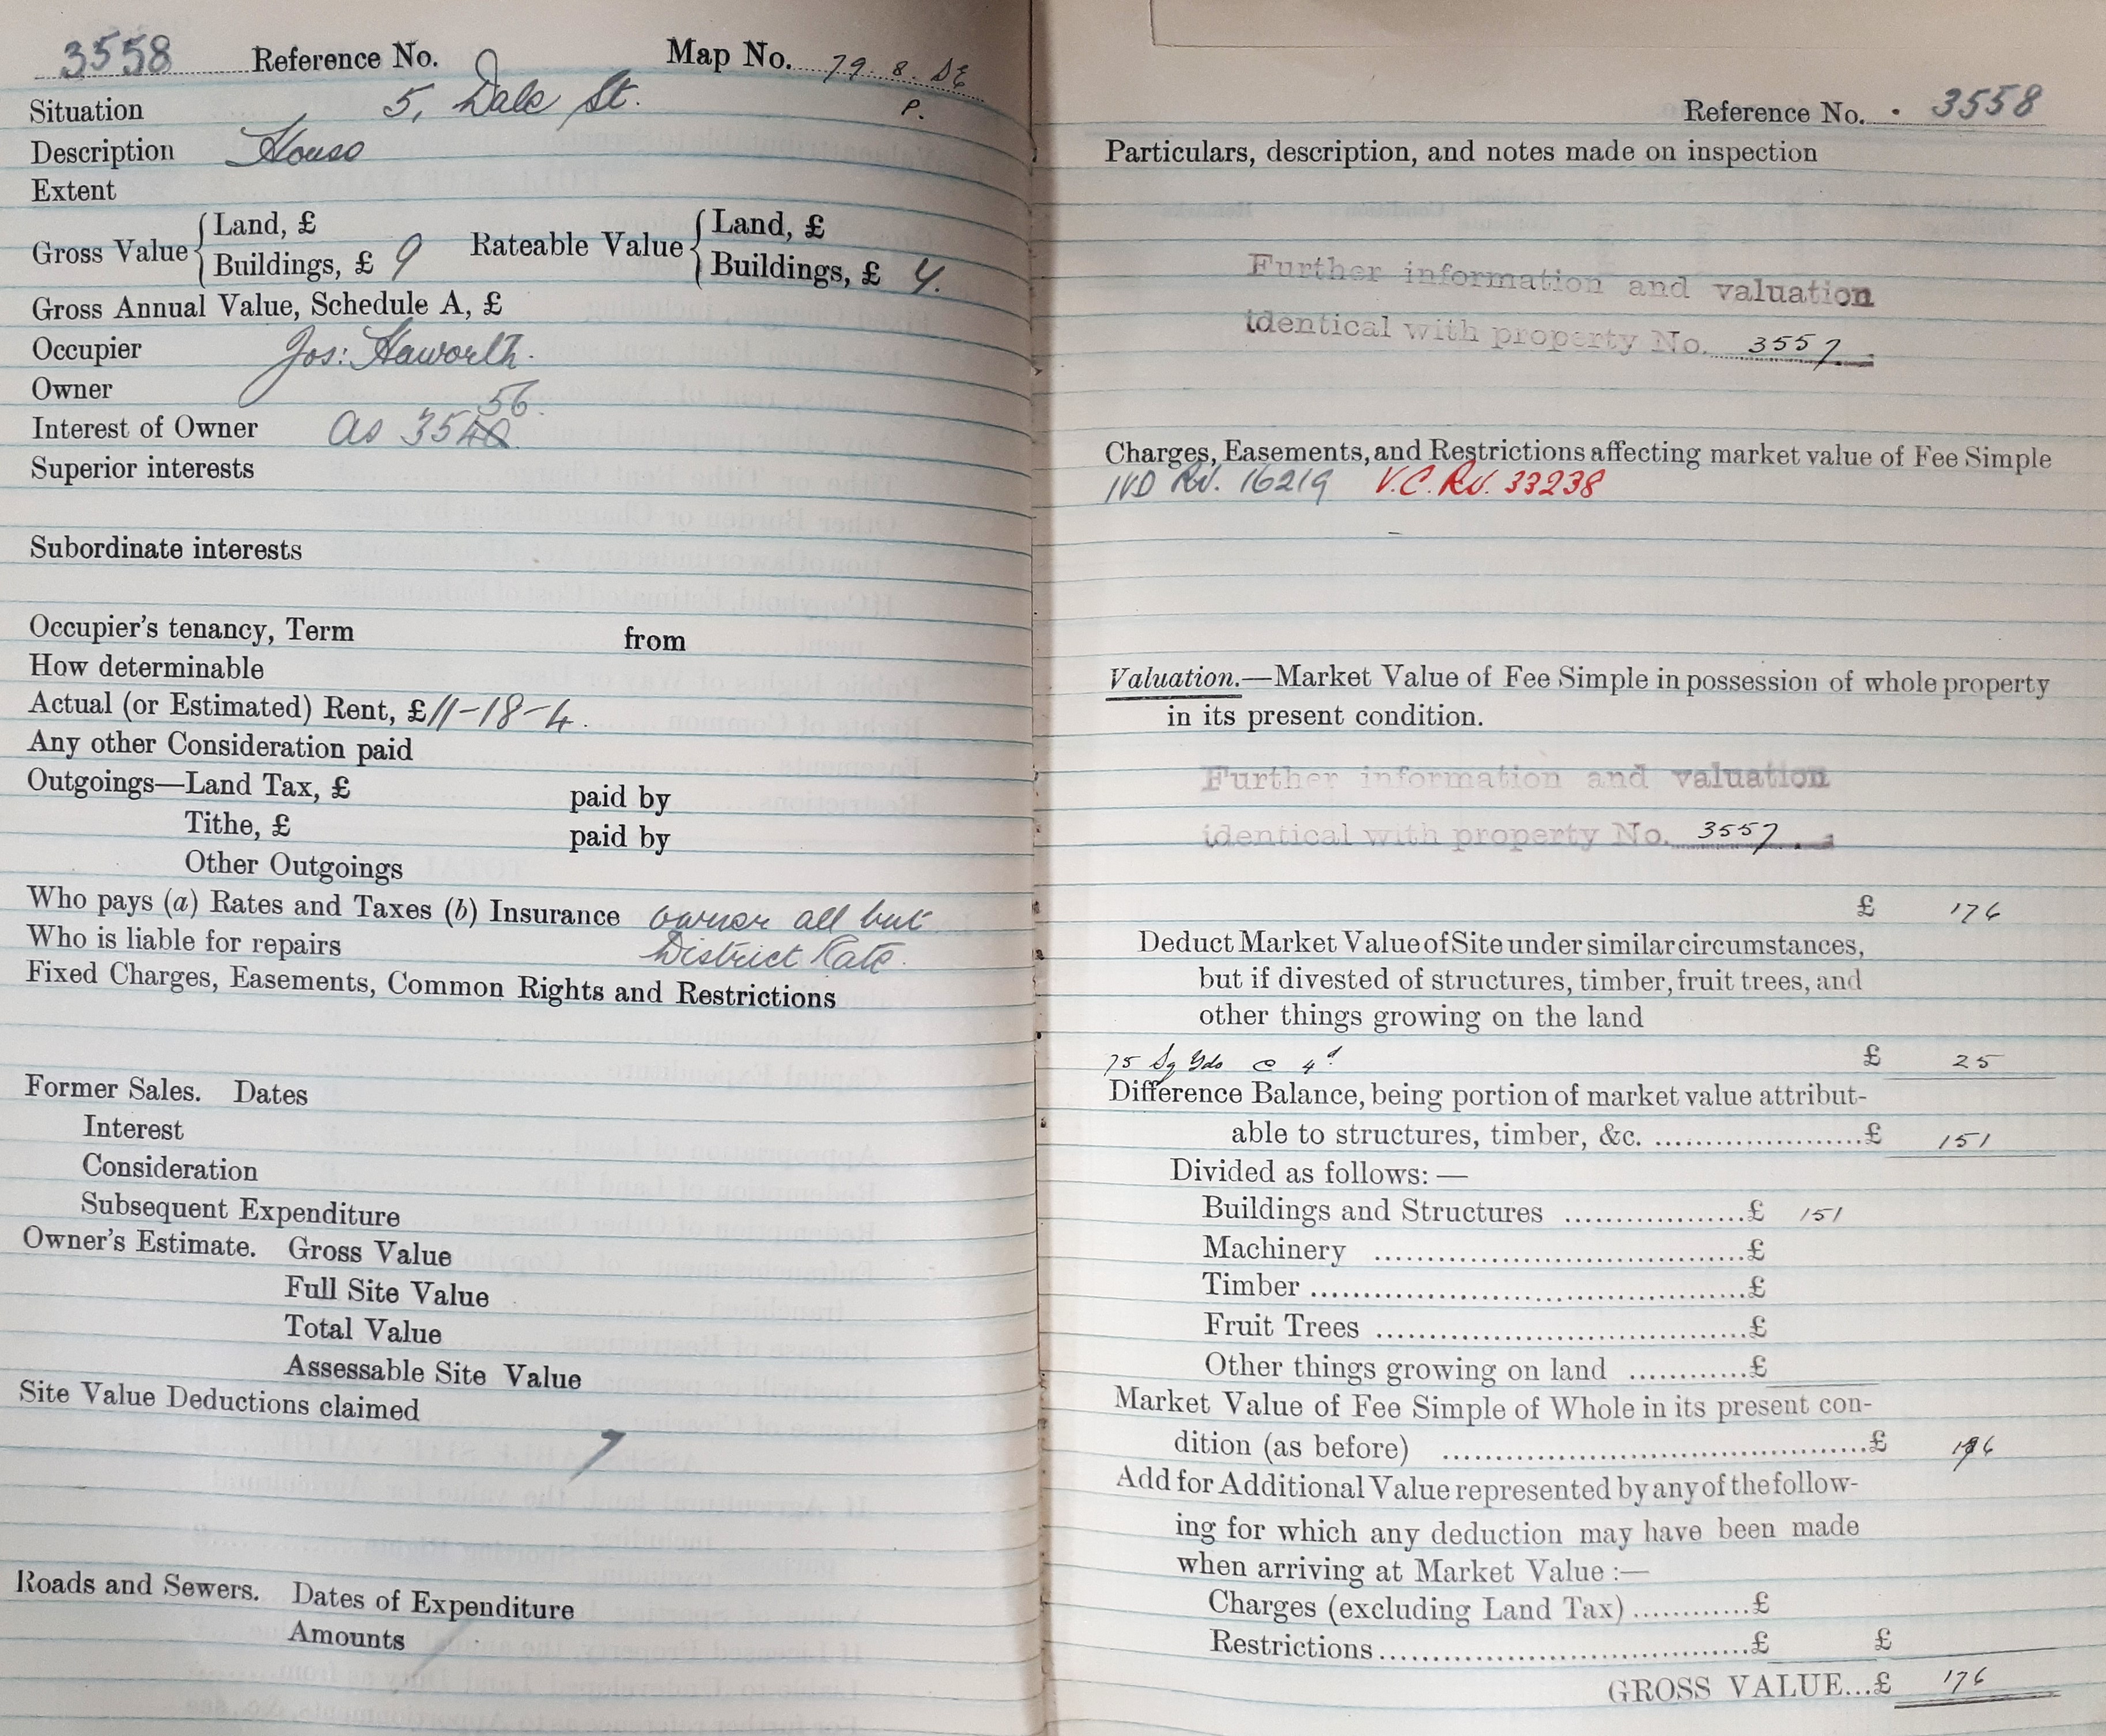 3558 Reference No. Map No. 79. 8. SE
P.
Situation 5, Dale St.
Description House
Extent
Gross Value { Land, £
Buildings, £ 9
Rateable Value { Land, £
Buildings, £ 4.
Gross Annual Value, Schedule A, £
Occupier Jos: Haworth.
Owner
56.
Interest of Owner As 35
Superior interests
Subordinate interests
Occupier's tenancy, Term from
How determinable
Actual (or Estimated) Rent, £ 11-18-4.
Any other Consideration paid
Outgoings—Land Tax, £ paid by
Tithe, £ paid by
Other Outgoings
Who pays (a) Rates and Taxes (b) Insurance owner all but
Who is liable for repairs District Rate.
Fixed Charges, Easements, Common Rights and Restrictions
Former Sales. Dates
Interest
Consideration
Subsequent Expenditure
Owner's Estimate. Gross Value
Full Site Value
Total Value
Assessable Site Value
Site Value Deductions claimed
Roads and Sewers. Dates of Expenditure
Amounts
Reference No. 3558
Particulars, description, and notes made on inspection
Further information and valuation
identical with property No. 3557
Charges, Easements, and Restrictions affecting market value of Fee Simple
IVD Rd. 16219 V.C. Rd. 33238
Valuation.—Market Value of Fee Simple in possession of whole property
in its present condition.
Further information and valuation
identical with property No. 3557
£ 176
Deduct Market Value of Site under similar circumstances,
but if divested of structures, timber, fruit trees, and
other things growing on the land
75 Sq Yds @ 4d £ 25
Difference Balance, being portion of market value attribut-
able to structures, timber, &c. ..................... £ 151
Divided as follows: —
Buildings and Structures .................. £ 151
Machinery .................. £
Timber .................. £
Fruit Trees .................. £
Other things growing on land ............ £
Market Value of Fee Simple of Whole in its present con-
dition (as before) .................. £ 176
Add for Additional Value represented by any of the follow-
ing for which any deduction may have been made
when arriving at Market Value :—
Charges (excluding Land Tax) ............ £
Restrictions .................. £ £
GROSS VALUE...£ 176